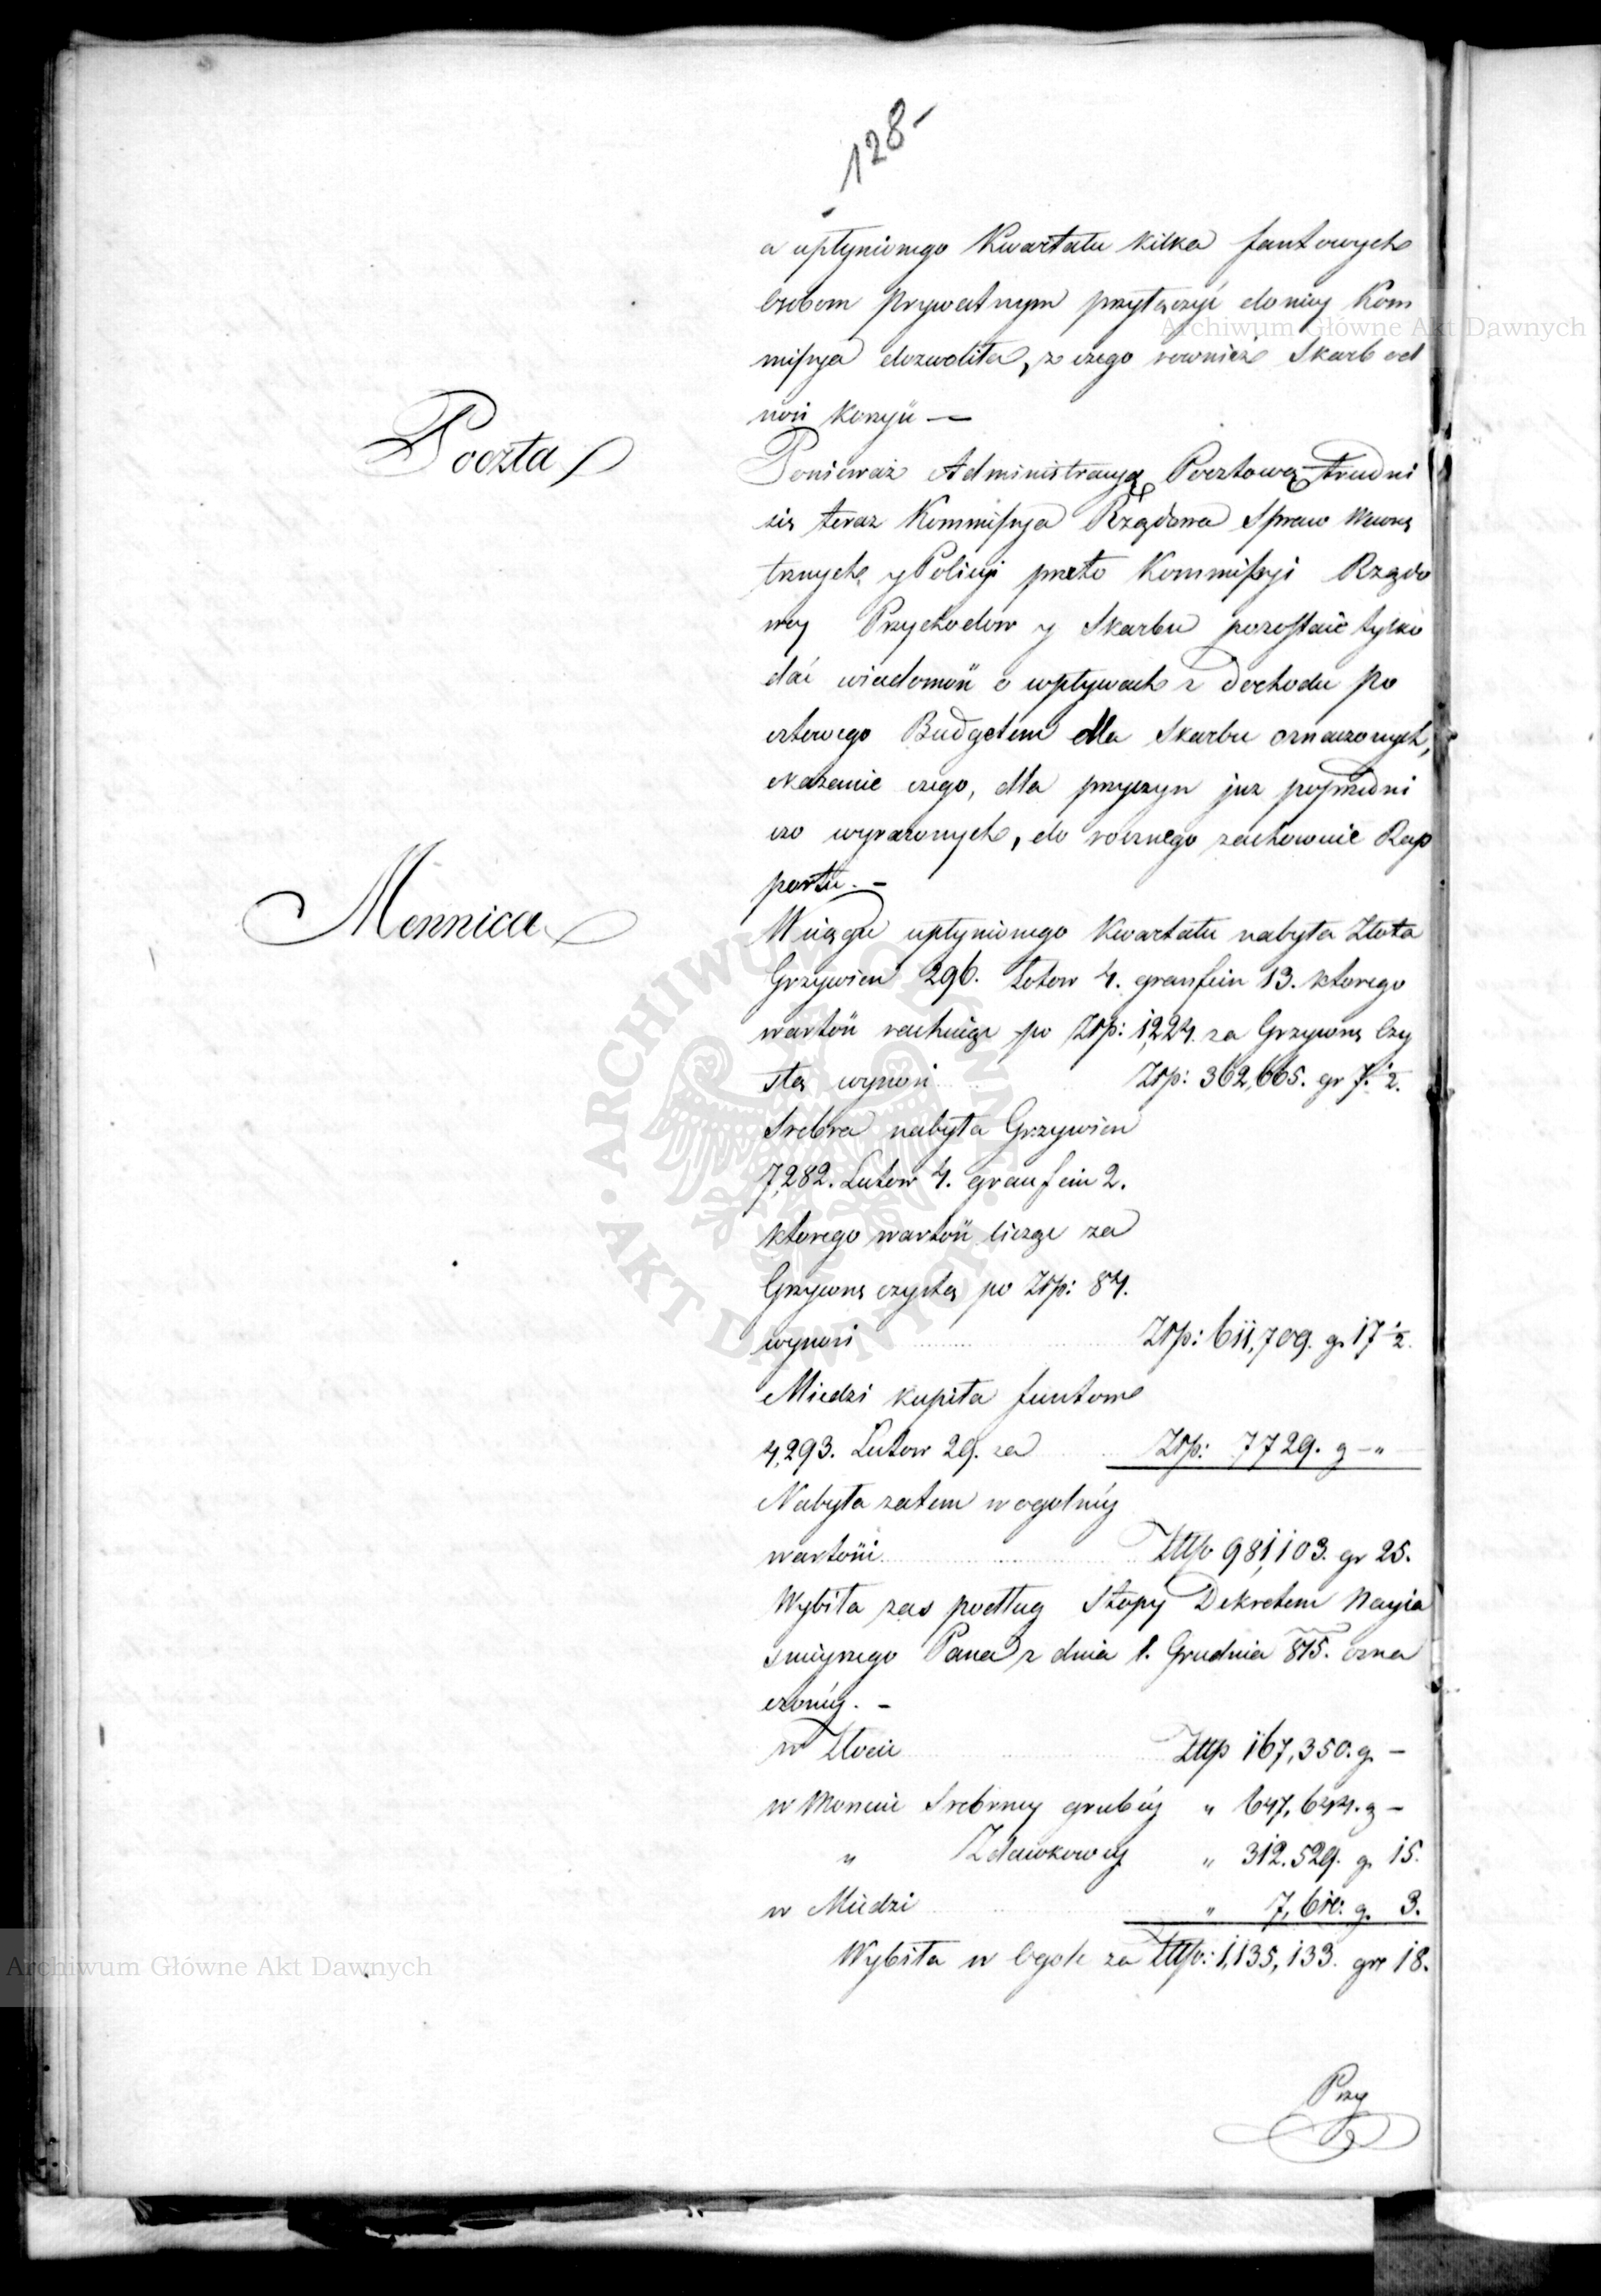 -128-
a upłynionego Kwartału kilka fantowych
Osobom prywatnym przyłączyć do niey Kom
missya dozwoliła, z czego rownież Skarb od
nosi Korzyść —
Poczta
Ponieważ Administracyą Pocztową trudni
się teraz Kommissya Rządowa Spraw Wewnę
trznych y Policyi przeto Kommissyi Rządo
wey Przychodow y Skarbu pozostaie tylko
dać wiadomość o wpływach z Dochodu po
cztowego Budgetem dla Skarbu oznaczonych,
okazanie czego, dla przyczyn już poprzedni
czo wyrażonych, do rocznego zachowuie Rap
portu. —
Mennica
W ciągu upłynionego Kwartału nabyła Złota
Grzywien 296. Łotow 4. granfein 13. ktorego
wartość rachuiąc po Złp: 1,224. za Grzywnę Czy
stą wynosi Złp: 362,665. gr 7. ½.
Srebra nabyła Grzywien
7,282. Łutow 4. granfein 2.
ktorego wartość licząc za
Grzywnę czystą po Złp: 84.
wynosi Złp: 611,709. g. 17 ½.
Miedzi kupiła funtow
4,293. Łutow 29. za Złp: 7729. g — „
Nabyła zatem w ogolney
wartości Złłp 981,103. gr 25.
Wybiła zas podług Stopy Dekretem Nayia
snieyszego Pana z dnia 1. Grudnia 815. ozna
czoney. —
w Złocie Złłp 167,350. g. —
w Monecie Srebrney grubey „ 647,644. g —
„ Zdawkowey „ 312.529. g. 15.
w Miedzi „ 7,610: g. 3.
Wybiła w Ogole za Złłp: 1,135,133. gr 18.
Przy
Archiwum Główne Akt Dawnych
Archiwum Główne Akt Dawnych
ARCHIWUM GŁÓWNE
AKT DAWNYCH